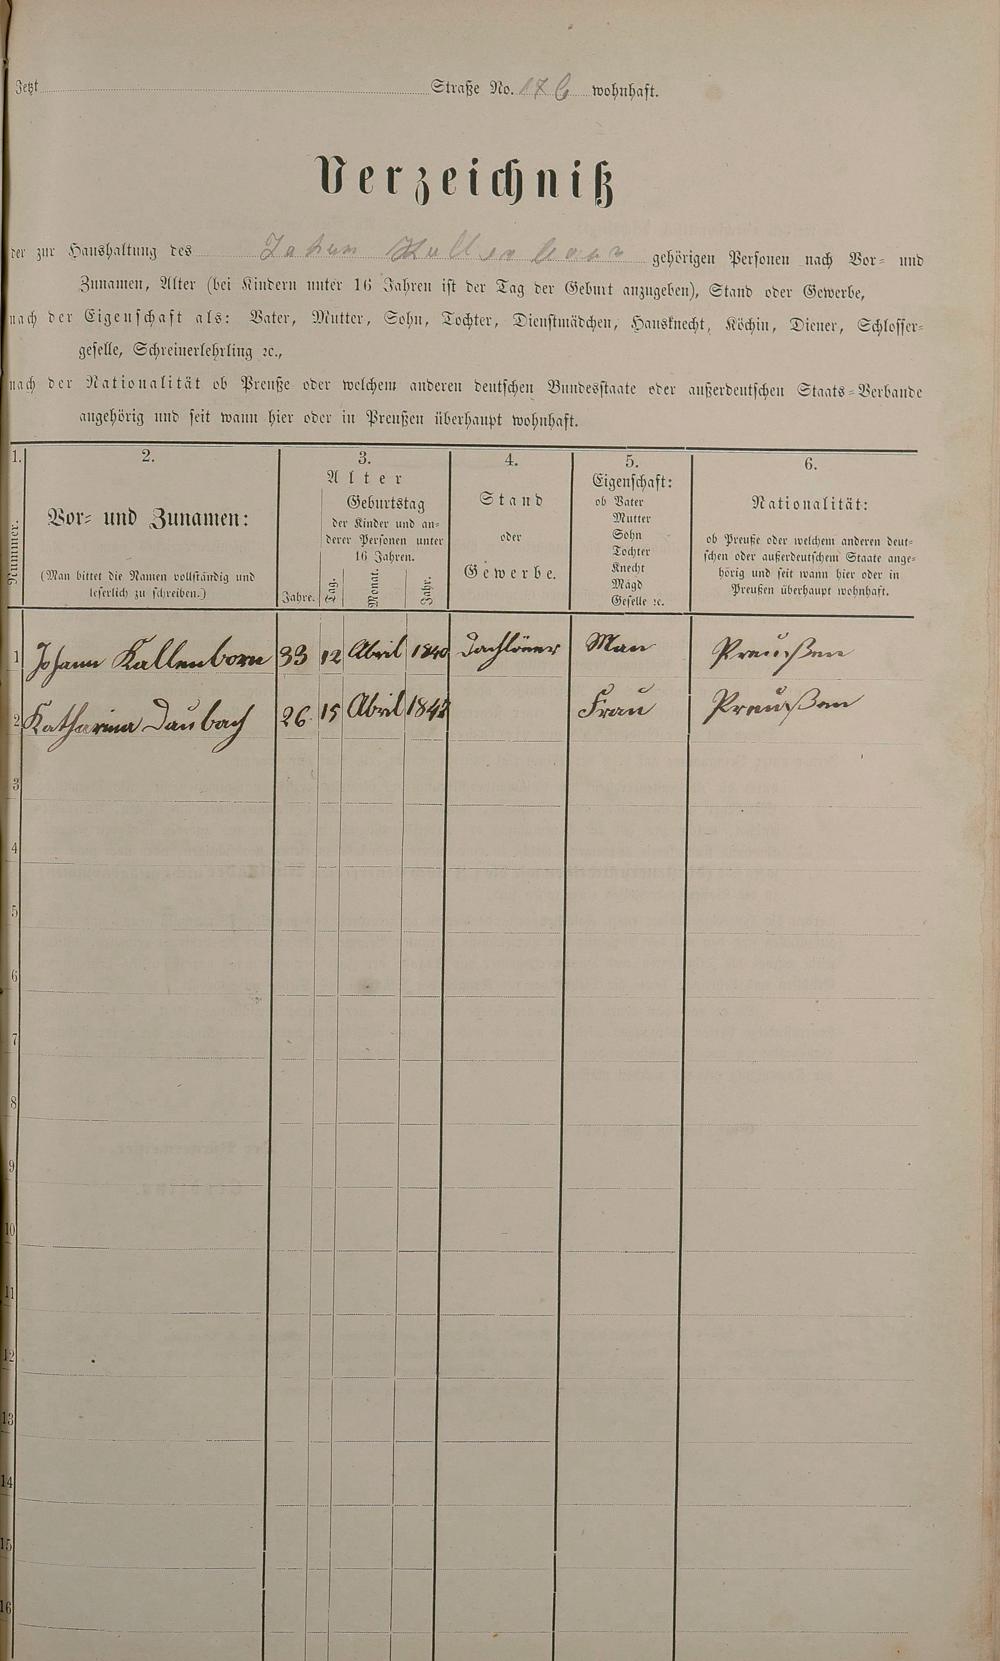 Jetzt Straße No. 17 b wohnhaft.
Verzeichniß
der zur Haushaltung des Johan Kallenborn gehörigen Personen nach Vor- und
Zunamen, Alter (bei Kindern unter 16 Jahren ist der Tag der Geburt anzugeben), Stand oder Gewerbe,
nach der Eigenschaft als: Vater, Mutter, Sohn, Tochter, Dienstmädchen, Hausknecht, Köchin, Diener, Schlosser-
geselle, Schreinerlehrling ꝛc.,
nach der Nationalität ob Preuße oder welchem anderen deutschen Bundesstaate oder außerdeutschen Staats-Verbande
angehörig und seit wann hier oder in Preußen überhaupt wohnhaft.
1.
Nummer.
2.
Vor- und Zunamen:
(Man bittet die Namen vollständig und
leserlich zu schreiben.)
3.
Alter
Geburtstag
der Kinder und an-
derer Personen unter
16 Jahren.
Jahre. Tag. Monat. Jahr.
4.
Stand
oder
Gewerbe.
5.
Eigenschaft:
ob Vater
Mutter
Sohn
Tochter
Knecht
Magd
Geselle ꝛc.
6.
Nationalität:
ob Preuße oder welchem anderen deut-
schen oder außerdeutschem Staate ange-
hörig und seit wann hier oder in
Preußen überhaupt wohnhaft.
1 Johann Kallenborn 33 12 Abril 1840 Dachlöner Man Preußen
2 Katharina Daubach 26 15 Abril 1848 Frau Preußen
3
4
5
6
7
8
9
10
11
12
13
14
15
16